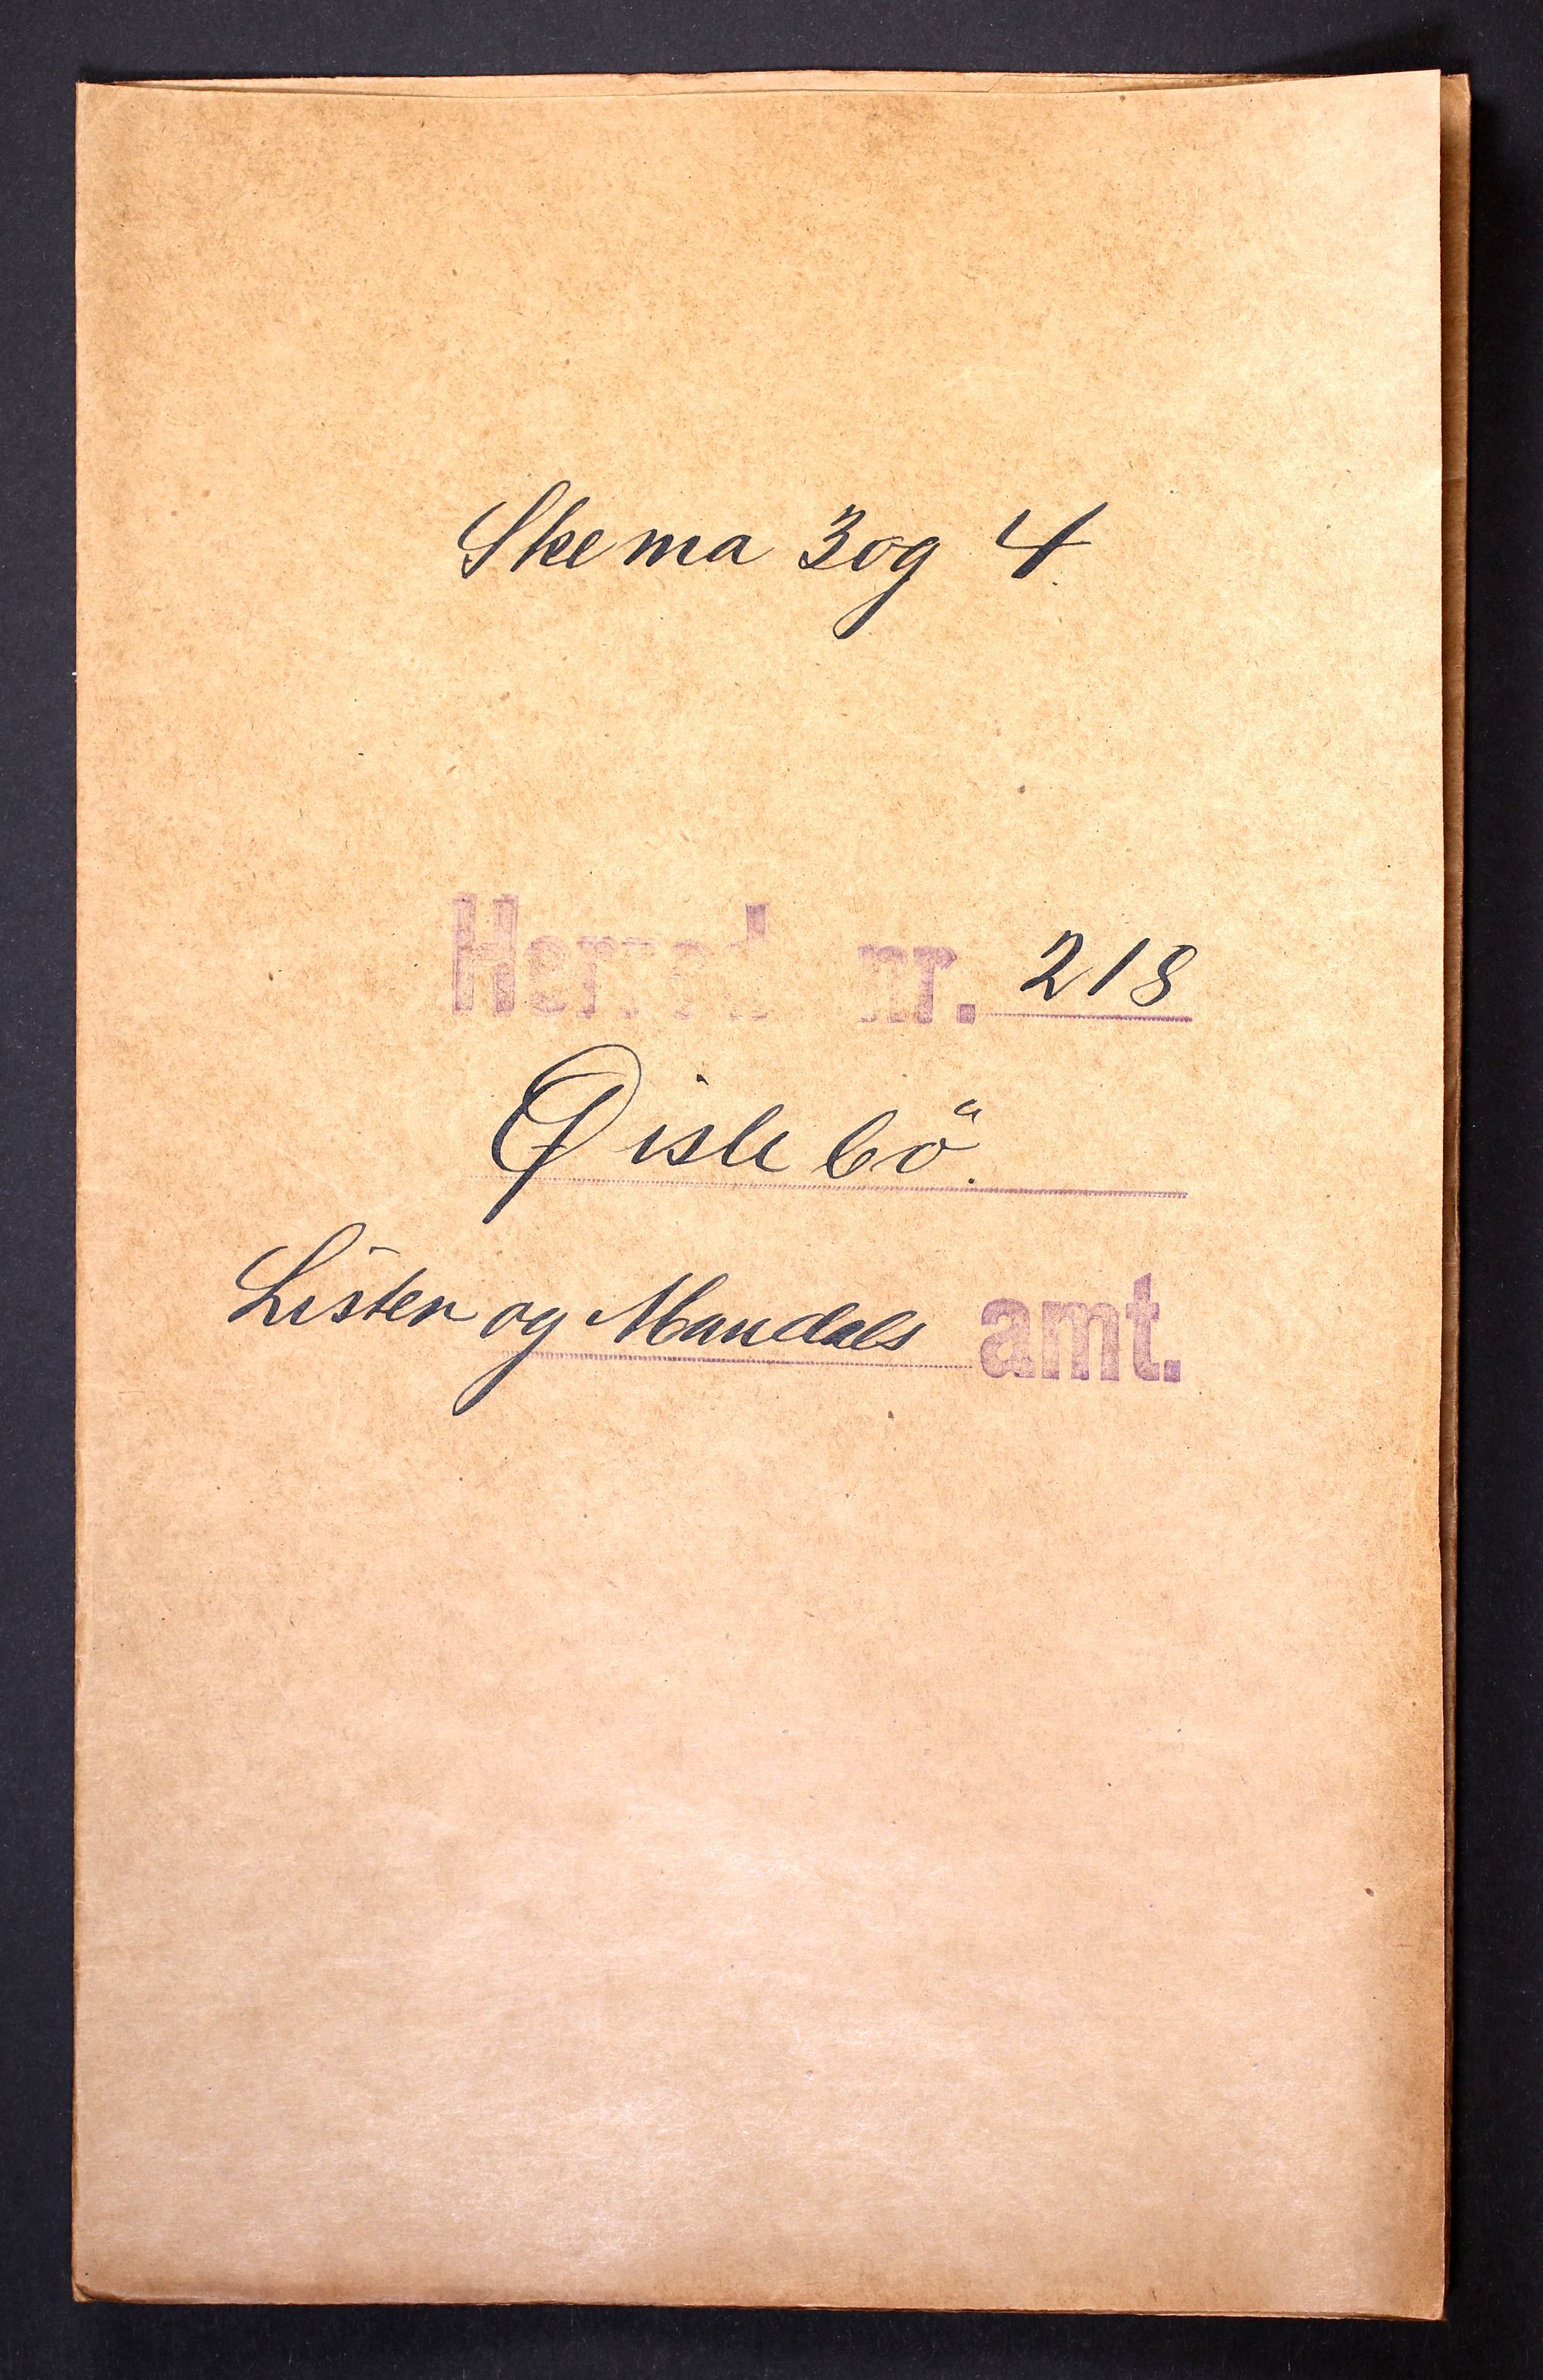 Skema 3 og 4.
Herred nr. 218
Øislebö.
Lister og Mandals amt.